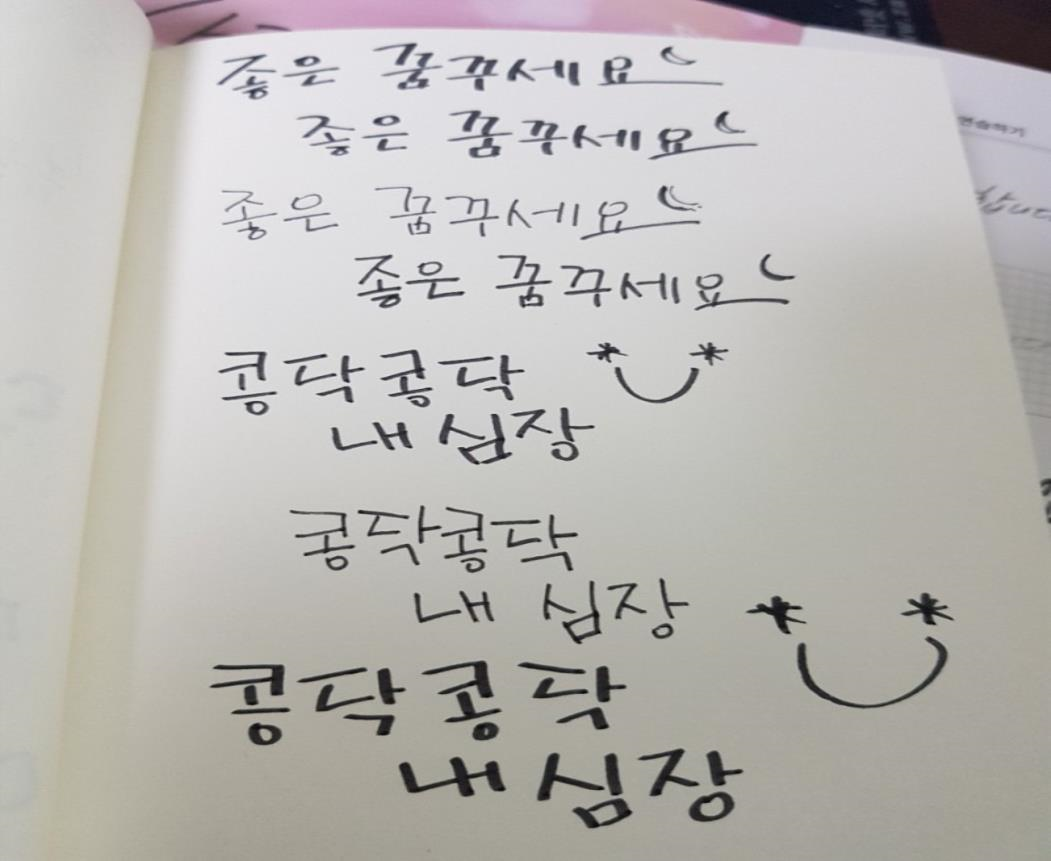 좋은 꿈꾸세요
좋은 꿈꾸세요
좋은 꿈꾸세요
좋은 꿈꾸세요
콩닥콩닥
내 심장
콩닥콩닥
내 심장
콩닥콩닥
내 심장
연습하기
합니다